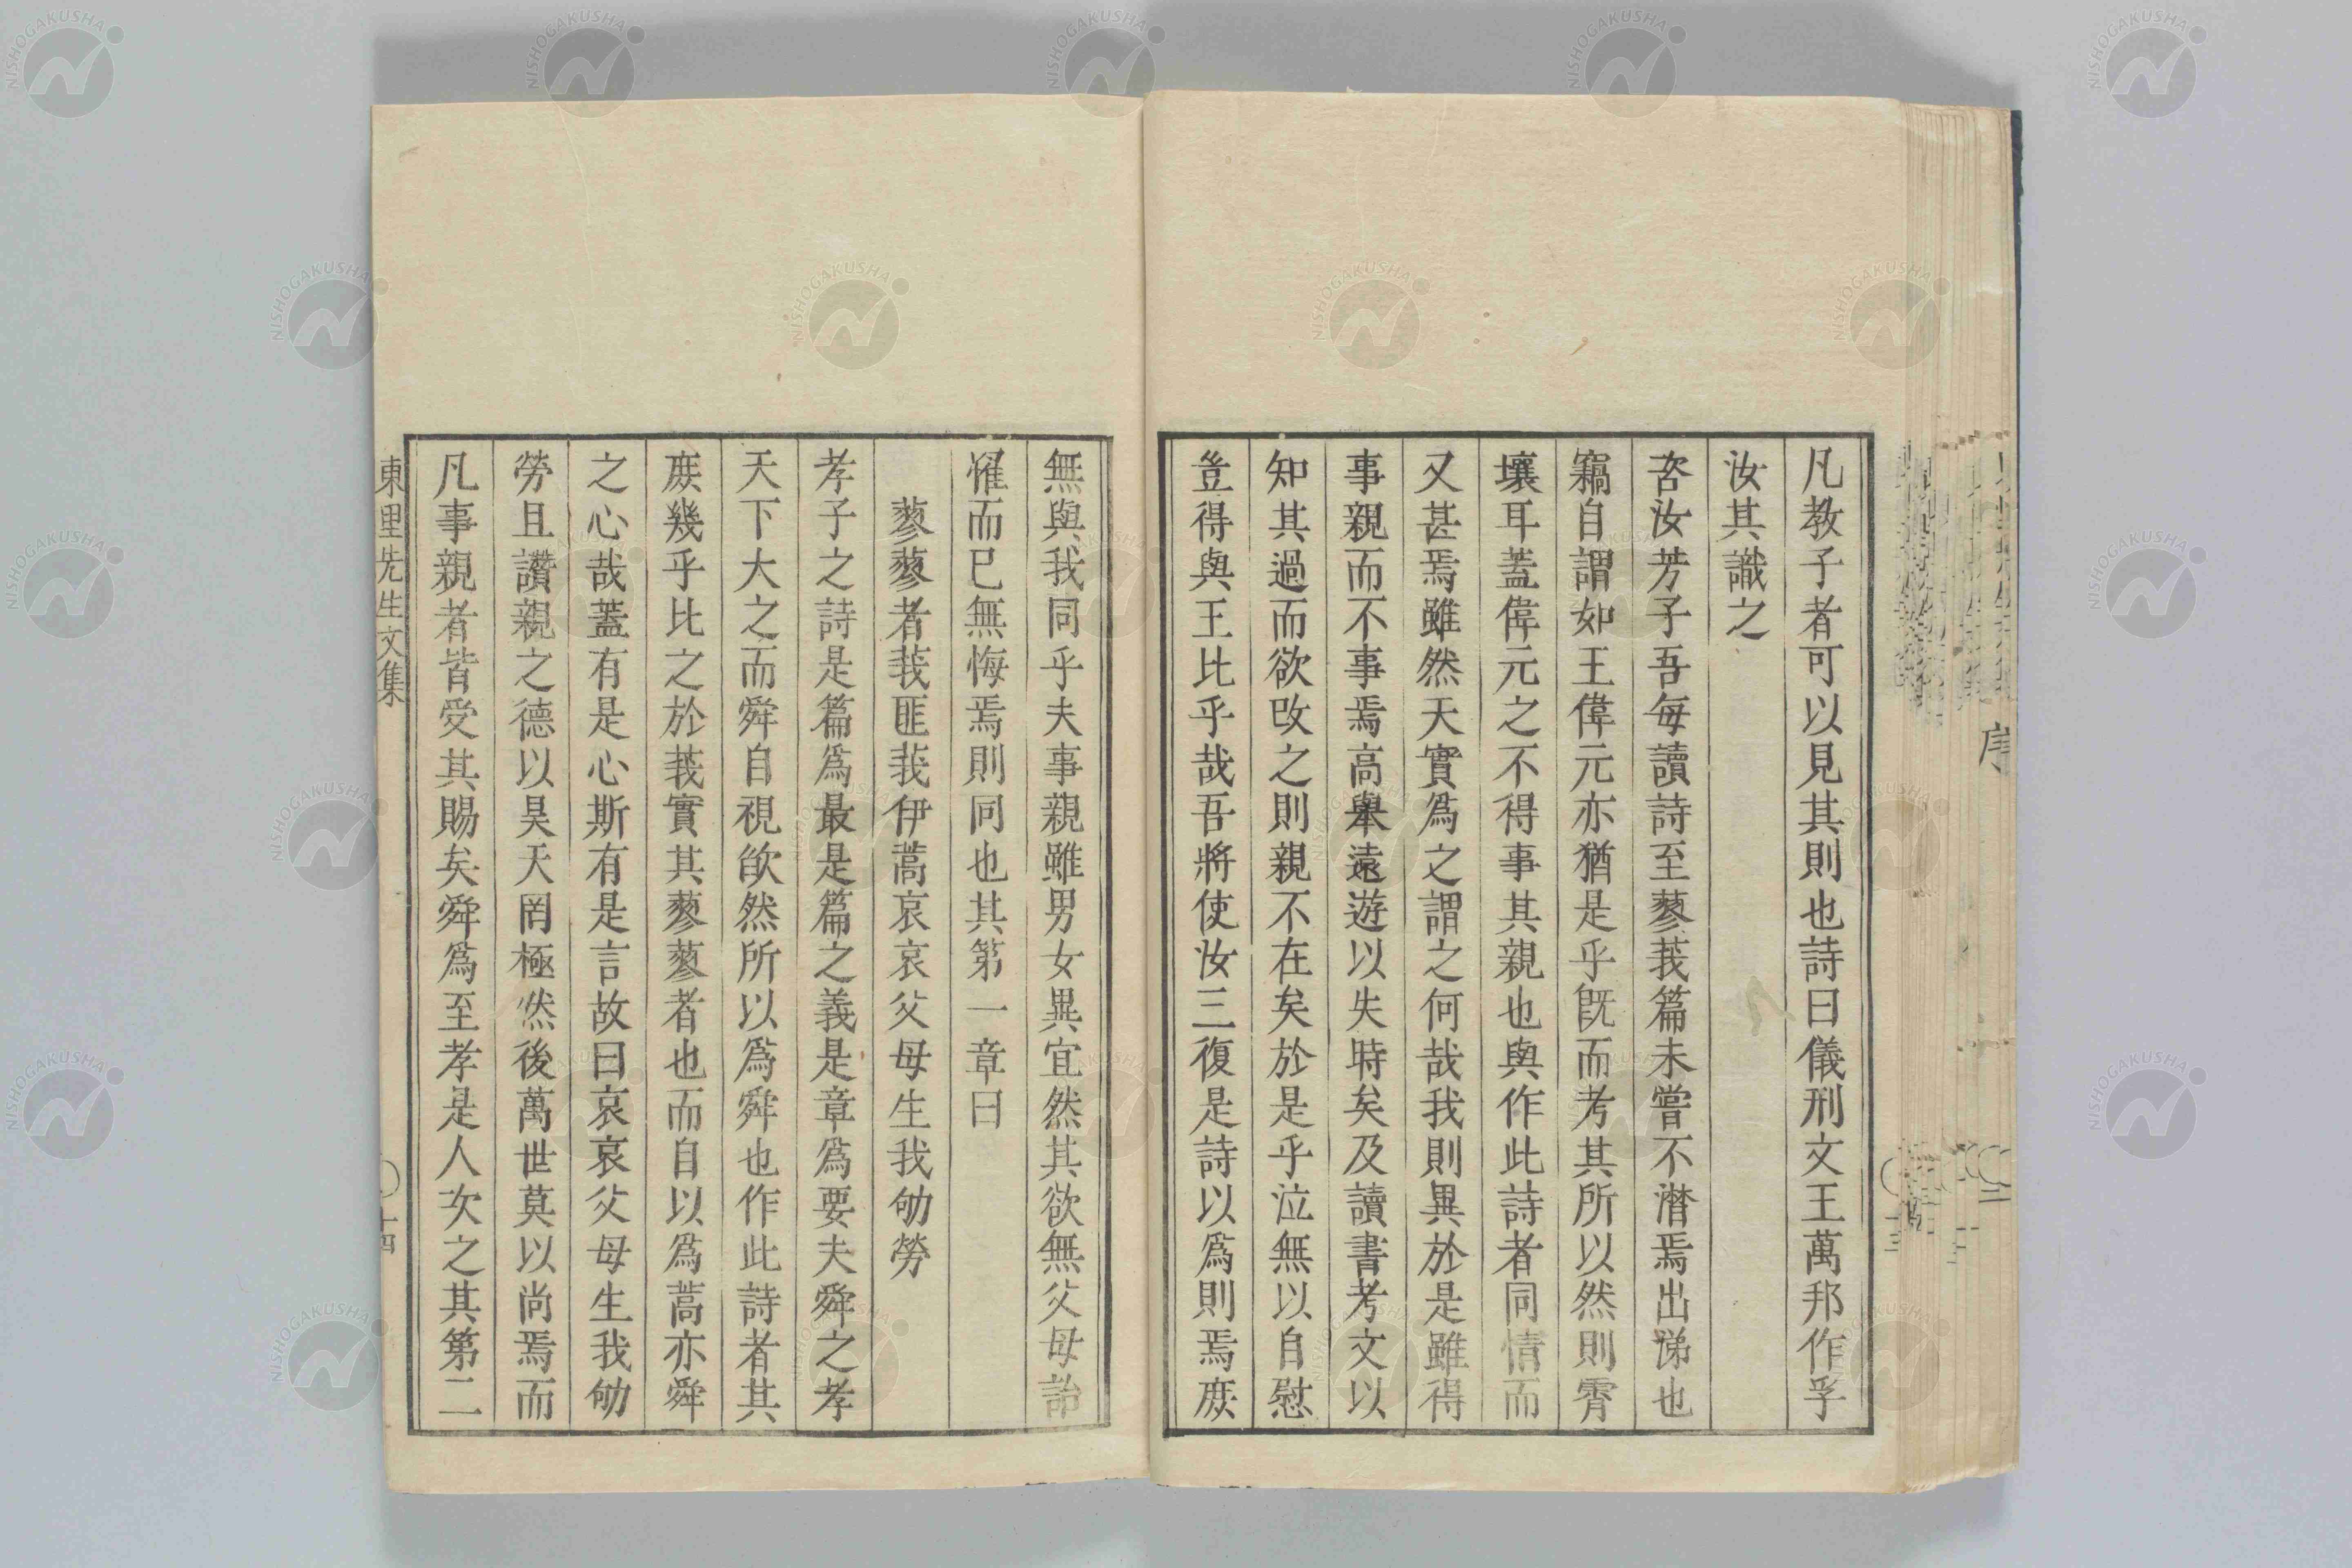 凡教子者可以見其則也詩曰儀刑文王萬邦作孚
汝其識之
咨汝芳子吾每讀詩至蓼莪篇未嘗不潸焉出涕也
竊自謂如王偉元亦猶是乎既而考其所以然則霄
壤耳蓋偉元之不得事其親也與作此詩者同情而
又甚焉雖然天實爲之謂之何哉我則異於是雖得
事親而不事焉高舉遠遊以失時矣及讀書考文以
知其過而欲改之則親不在矣於是乎泣無以自慰
豈得與王比乎哉吾將使汝三復是詩以爲則焉庶
無與我同乎夫事親雖男女異宜然其欲無父母詒
懼而已無悔焉則同也其第一章曰
蓼蓼者莪匪莪伊蒿哀哀父母生我劬勞
孝子之詩是篇爲最是篇之義是章爲要夫舜之孝
天下大之而舜自視欿然所以爲舜也作此詩者其
庶幾乎比之於莪實其蓼蓼者也而自以爲蒿亦舜
之心哉蓋有是心斯有是言故曰哀哀父母生我劬
勞且讚親之德以昊天罔極然後萬世莫以尚焉而
凡事親者皆受其賜矣舜爲至孝是人次之其第二
東里先生文集
十四
序
NISHOGAKUSHA